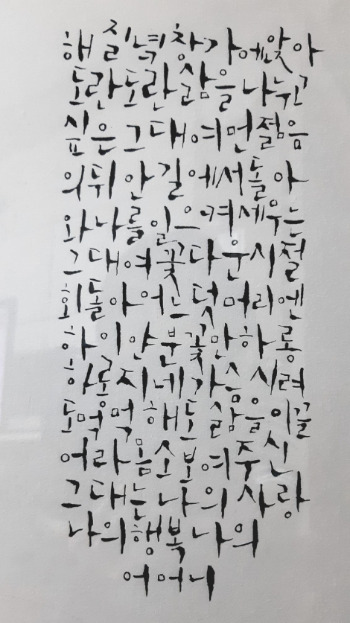 해질녘창가에앉아
도란도란삶을나누고
싶은그대여먼젊음
의뒤안길에서돌아
와나를일으켜세우는
그대여꽃다운시절
회돌아어느덧머리엔
하이얀분꽃만하롱
하롱지네가슴시려
도먹먹해도삶을이끌
어라몸소보여주신
그대는나의사랑
나의행복나의
어머니